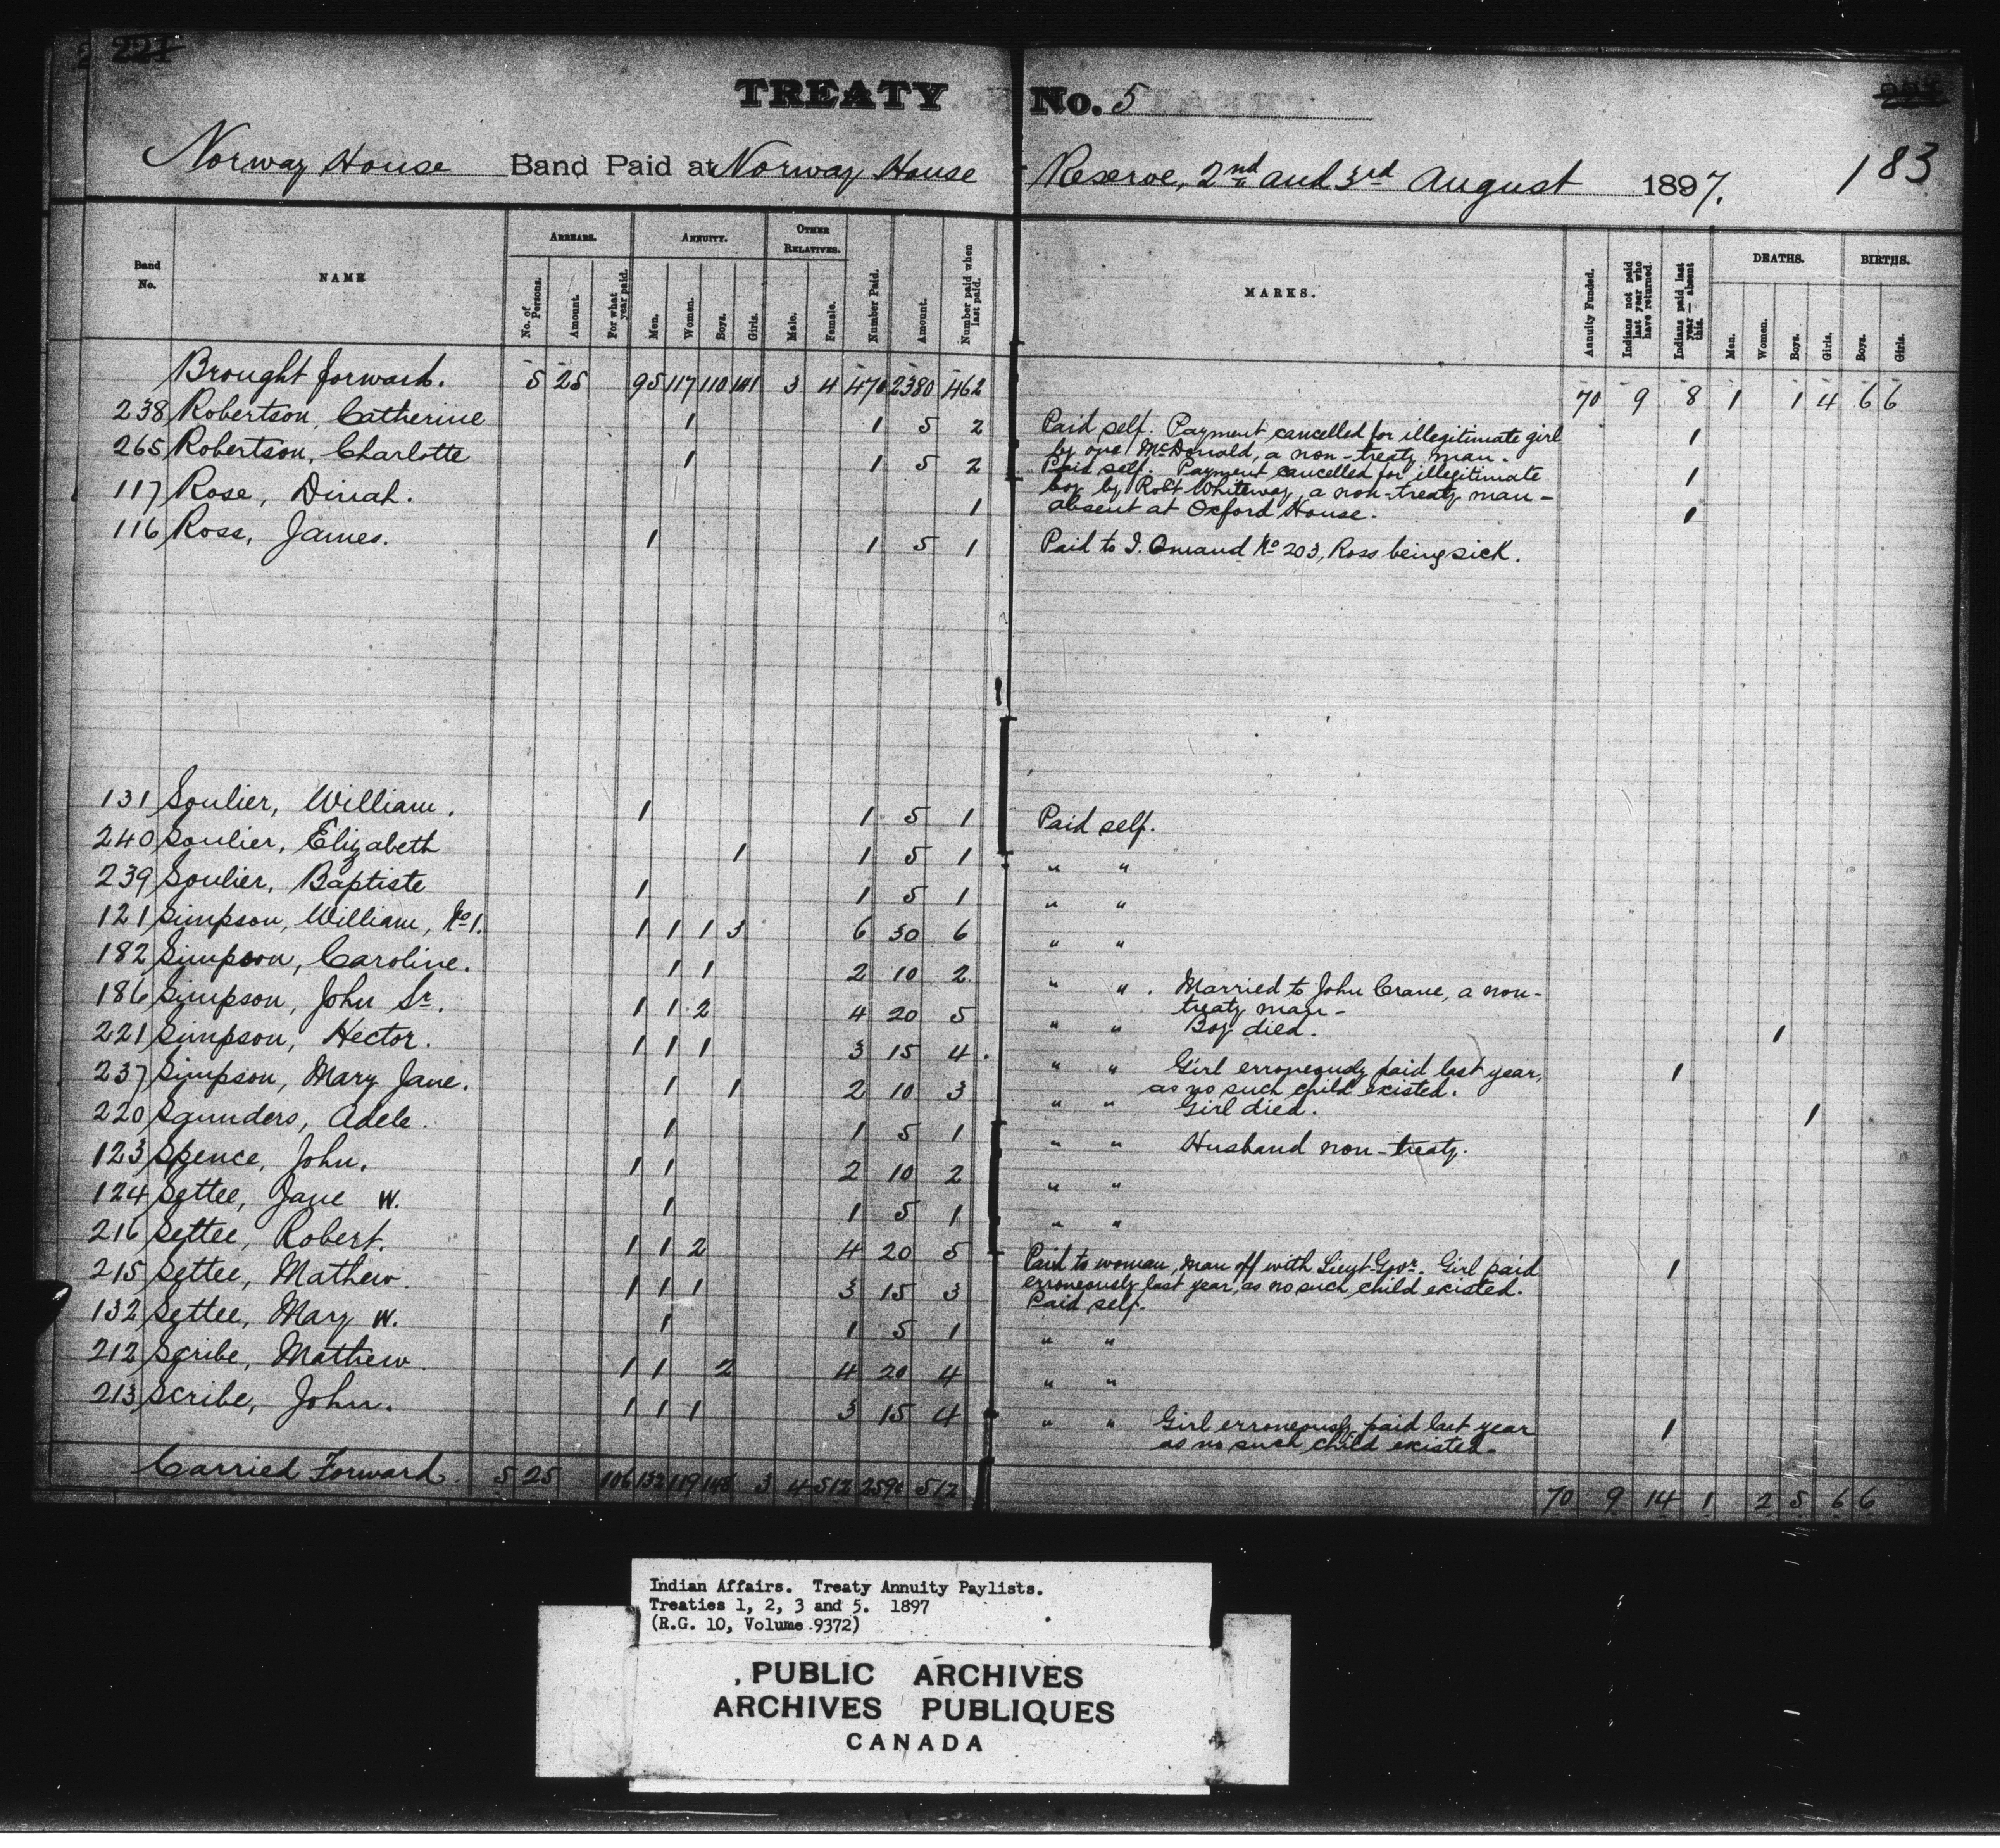 221
TREATY No. 5
183
Norway House Band Paid at Norway House Reserve, 2nd and 3rd August 1897.
ARREARS. ANNUITY. OTHER RELATIVES. DEATHS. BIRTHS.
Band No. NAME No. of Persons. Amount. For what year paid. Men. Women. Boys. Girls. Male. Female. Number Paid. Amount. Number paid when last paid. MARKS. Annuity Funded. Indians not paid last year who have returned. Indians paid last year — absent this. Men. Women. Boys. Girls. Boys. Girls.
Brought forward. 5 25 95 117 110 141 3 4 470 2380 462 70 9 8 1 1 4 6 6
238 Robertson, Catherine 1 1 5 2 Paid self. Payment cancelled for illegitimate girl 1
by one McDonald, a non-treaty man.
265 Robertson, Charlotte 1 1 5 2 Paid self. Payment cancelled for illegitimate 1
boy by Robt Whiteway, a non-treaty man -
117 Rose, Dinah. 1 absent at Oxford House. 1
116 Ross, James. 1 1 5 1 Paid to I. Omand No 203, Ross being sick.
131 Soulier, William. 1 1 5 1 Paid self.
240 Soulier, Elizabeth 1 1 5 1 " "
239 Soulier, Baptiste 1 1 5 1 " "
121 Simpson, William, No 1. 1 1 1 3 6 30 6 " "
182 Simpson, Caroline. 1 1 2 10 2 " ". Married to John Crane, a non-
treaty man -
186 Simpson, John Sr. 1 1 2 4 20 5 " " Boy died. 1
221 Simpson, Hector. 1 1 1 3 15 4. " " Girl erroneously paid last year, 1
as no such child existed.
237 Simpson, Mary Jane. 1 1 2 10 3 " " Girl died. 1
220 Saunders, Adele. 1 1 5 1 " " Husband non-treaty.
123 Spence, John. 1 1 2 10 2 " "
124 Settee, Jane W. 1 1 5 1 " "
216 Settee, Robert. 1 1 2 4 20 5 Paid to woman, Man off with Lieut-Govr. Girl paid 1
erroneously last year, as no such child existed.
215 Settee, Mathew. 1 1 1 3 15 3 Paid self.
132 Settee, Mary W. 1 1 5 1 " "
212 Scribe, Mathew. 1 1 2 4 20 4 " "
213 Scribe, John. 1 1 1 3 15 4 " " Girl erroneously paid last year 1
as no such child existed.
Carried Forward. 5 25 106 132 119 148 3 4 512 2590 512 70 9 14 1 2 5 6 6
Indian Affairs. Treaty Annuity Paylists.
Treaties 1, 2, 3 and 5. 1897
(R.G. 10, Volume 9372)
PUBLIC ARCHIVES
ARCHIVES PUBLIQUES
CANADA